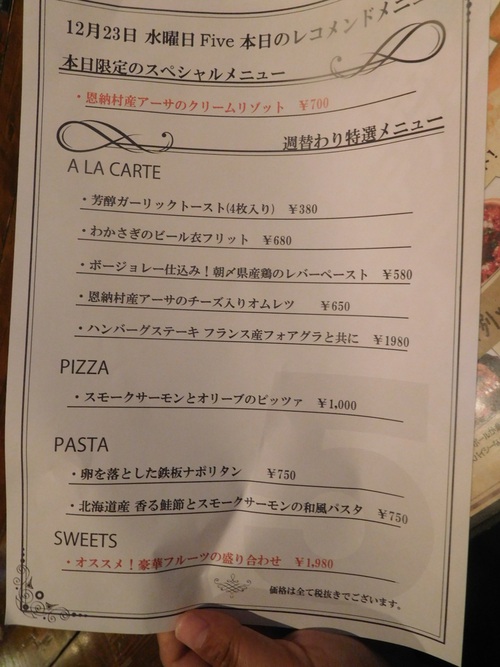 12月23日 水曜日 Five 本日のレコメンドメニュー
本日限定のスペシャルメニュー
・恩納村産アーサのクリームリゾット ￥700
週替わり特選メニュー
A LA CARTE
・芳醇ガーリックトースト(4枚入り) ￥380
・わかさぎのビール衣フリット ￥680
・ボージョレー仕込み！朝〆県産鶏のレバーペースト ￥580
・恩納村産アーサのチーズ入りオムレツ ￥650
・ハンバーグステーキ フランス産フォアグラと共に ￥1980
PIZZA
・スモークサーモンとオリーブのピッツァ ￥1,000
PASTA
・卵を落とした鉄板ナポリタン ￥750
・北海道産 香る鮭節とスモークサーモンの和風パスタ ￥750
SWEETS
・オススメ！豪華フルーツの盛り合わせ ￥1,980
価格は全て税抜きでございます。